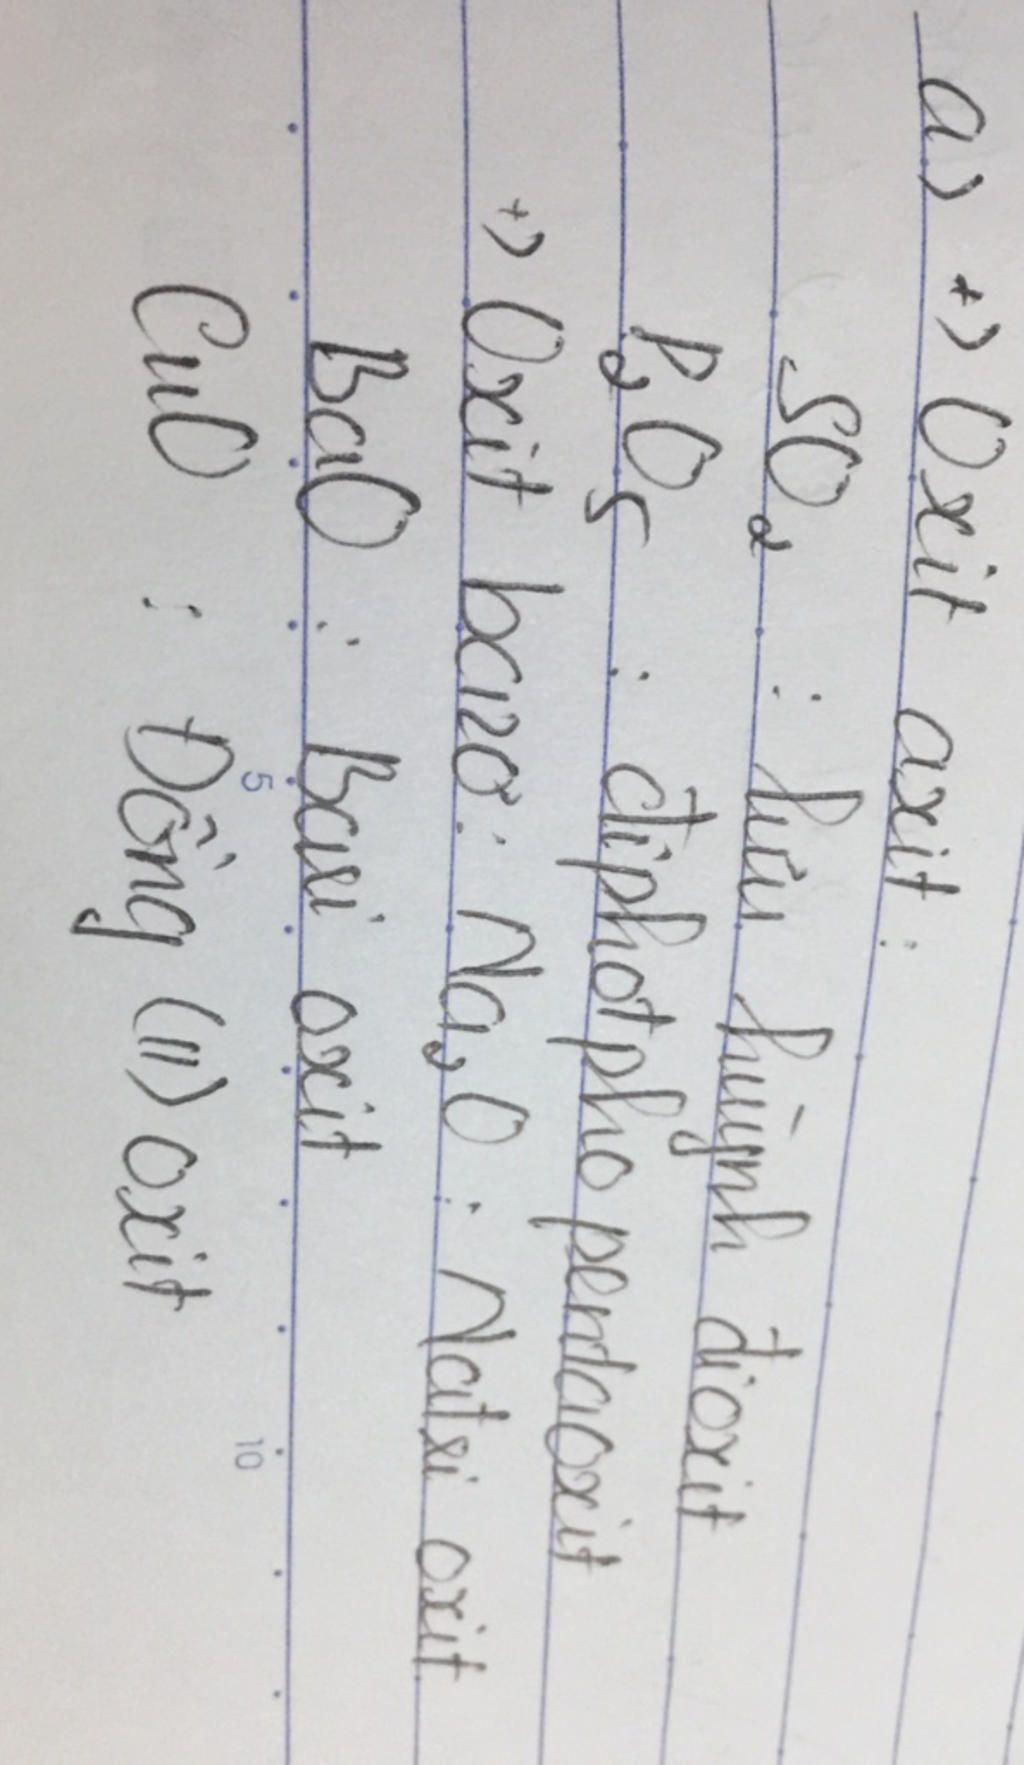 a) +) Oxit axit :
SO₂ : lưu huỳnh đioxit
P₂O₅ : điphotpho pentaoxit
+) Oxit bazo : Na₂O : Natri oxit
BaO : Bari oxit
CuO : Đồng (II) oxit
5
10